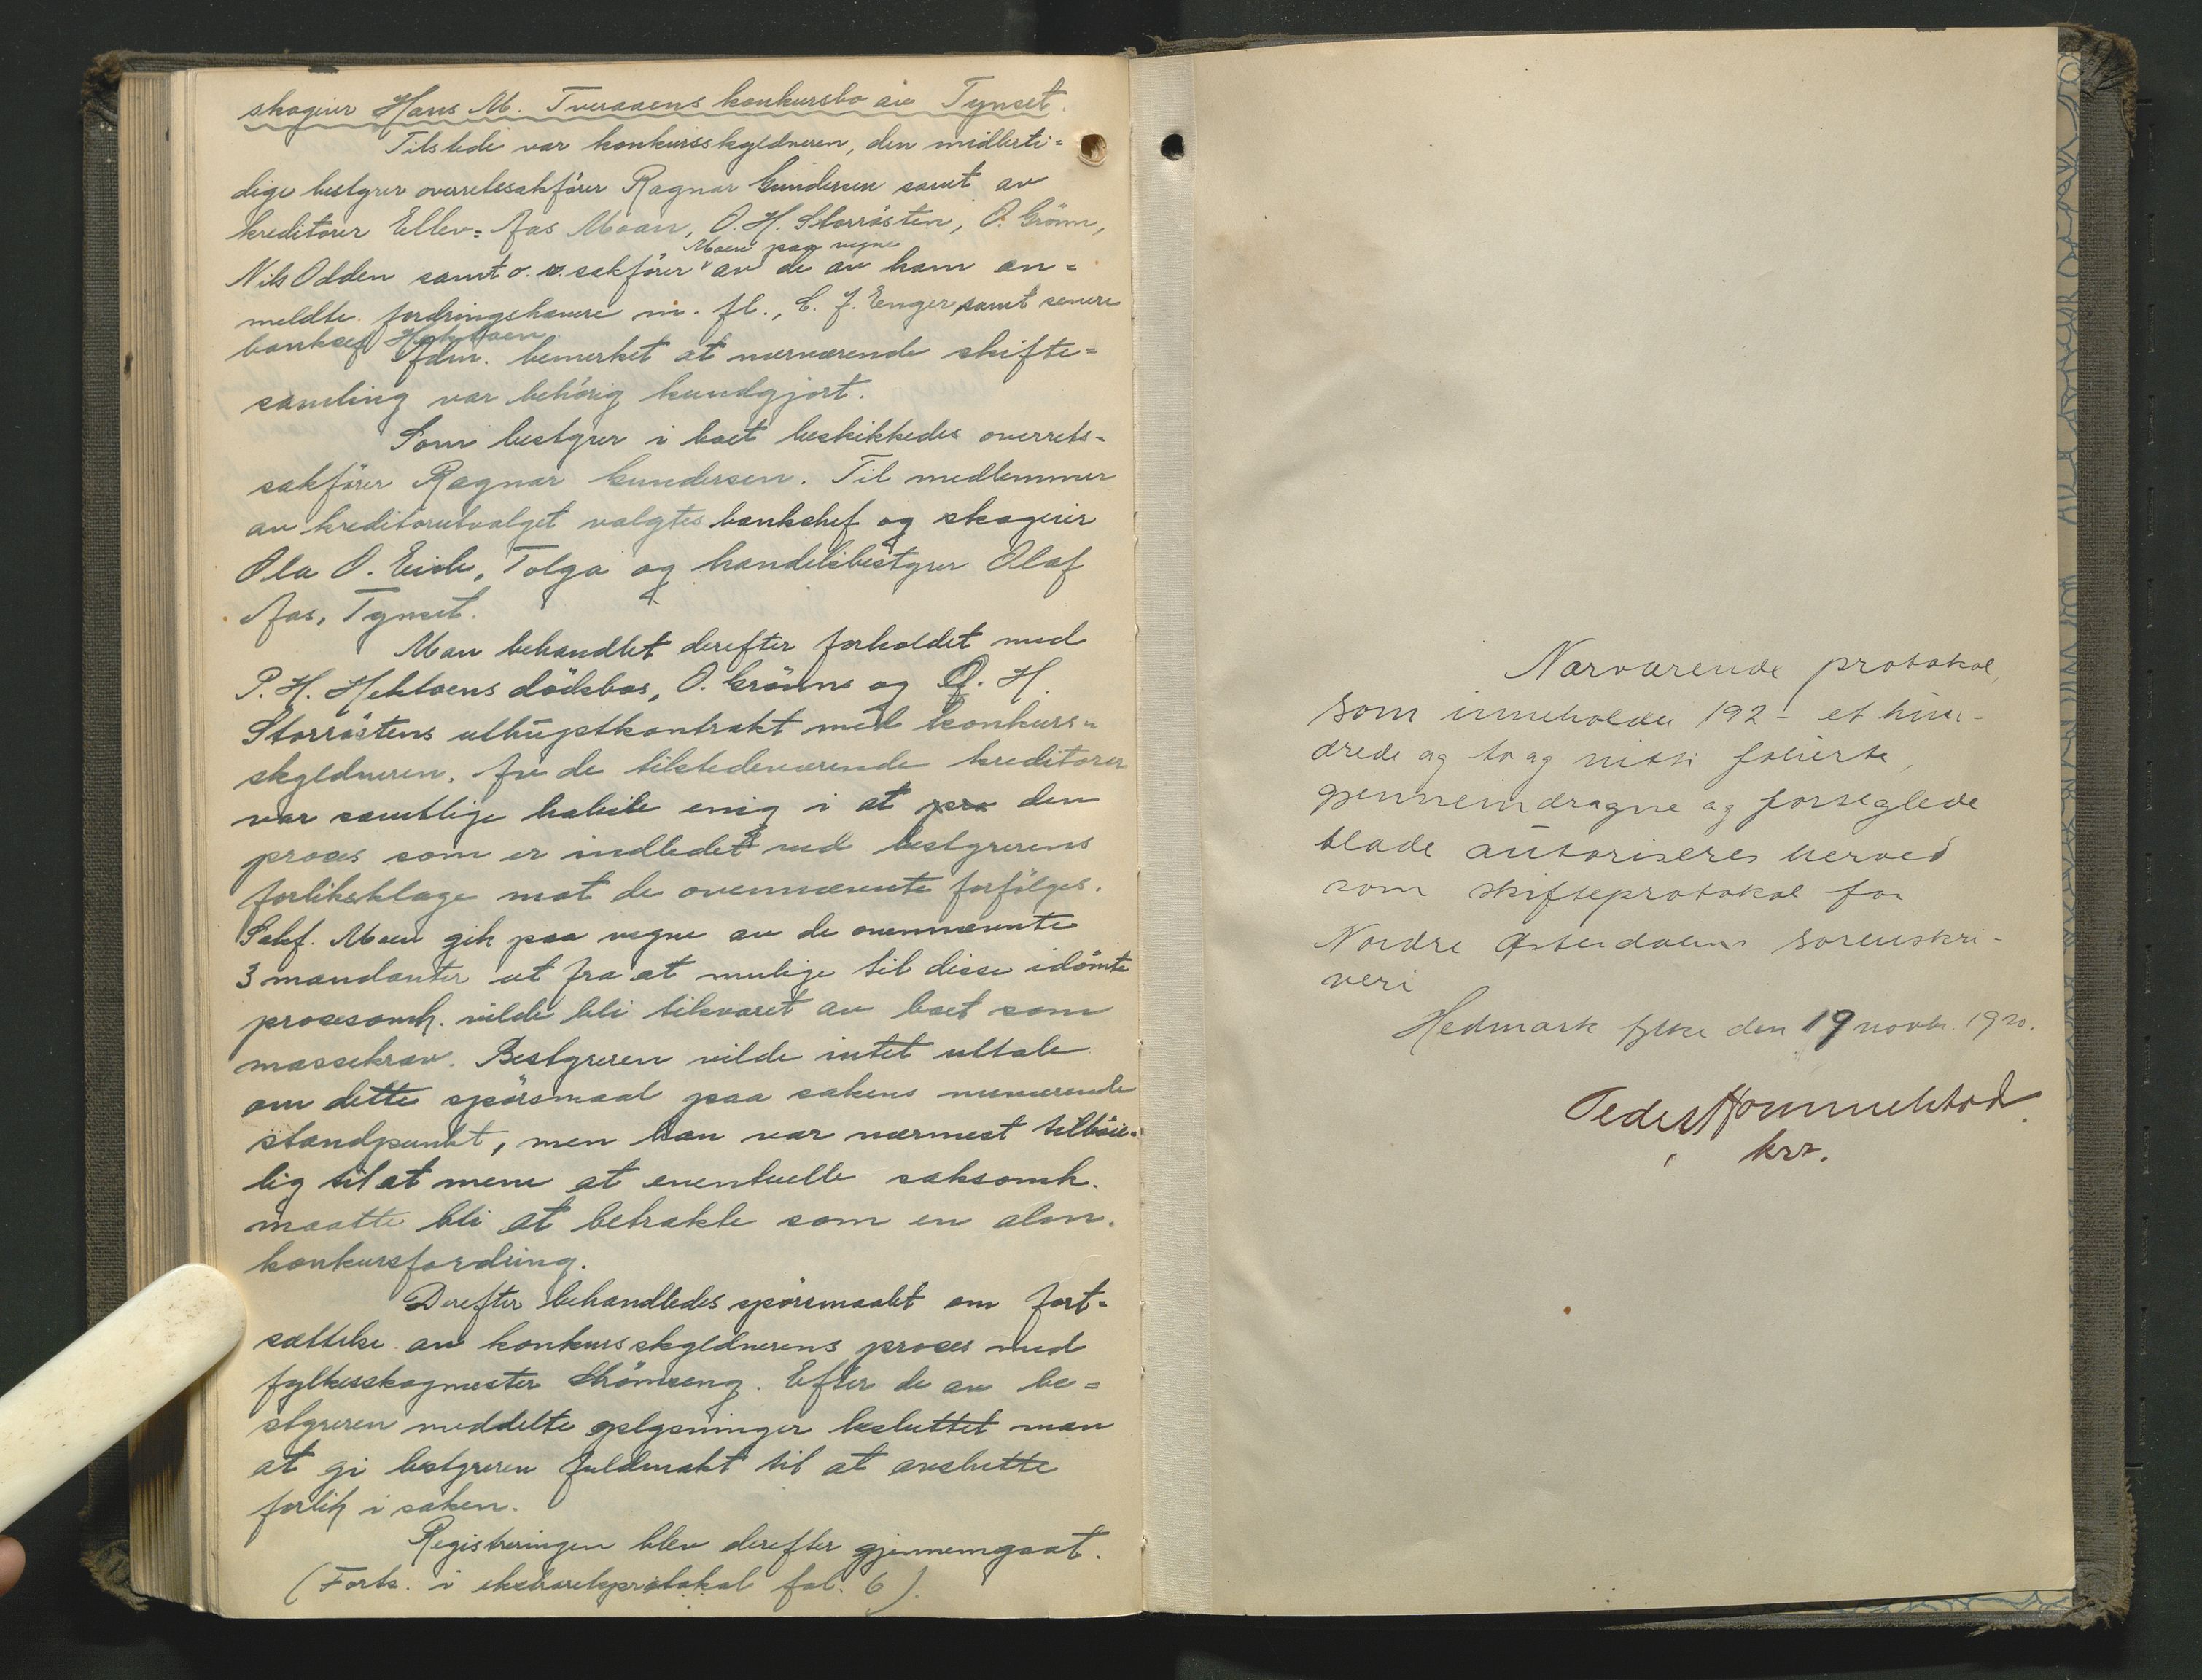 skogeier Hans M. Tveraaens konkursbo av Tynset.
Tilstede var konkursskyldneren, den midlerti=
dige bestyrer overretssakfører Ragnar Gundersen samt av
kreditorer Ellev= Aas Moan, O. H. Storrøsten, O. Grönn,
Moen paa vegne
Nils Odden samt o.r.sakfører av de av ham an=
meldte fordringshavere m. fl., E. J. Enger, samt senere
banksef Hektoen.
Adm. bemerket at nærværende skifte=
samling var behörig kundgjort.
Som bestyrer i boet beskikkedes overrets-
sakfører Ragnar Gundersen. Til medlemmer
av kreditorutvalget valgtes bankchef og skogeier
Ola O. Eide, Tolga og handelsbestyrer Olaf
Aas, Tynset.
Man behandlet derefter forholdet med
P. H. Hektoens dödsbos, O. Grönns og O. H.
Storröstens uthugstkontrakt med konkurs=
skyldneren. Av de tilstedeværende kreditorer
var samtlige habile enig i at den
proces som er indledet ved bestyrerens
forliksklage mot de ovennævnte forfölges.
Sakf. Moen gik paa vegne av de ovennævnte
3 mandanter ut fra at mulige til disse idömte
prosesomk. vilde bli tilsvaret av boet som
massekrav. Bestyreren vilde intet uttale
om dette spörsmaal paa sakens nuværende
standpunkt, men han var nærmest tilböie=
lig til at mene at eventuelle saksomk.
maatte bli at betrakte som en alm.
konkursfordring.
Derefter behandledes spörsmaalet om fort=
sættelse av konkursskyldnerens proces med
fylkesskogmester Strömseng. Efter de av be=
styreren meddelte oplysninger besluttet man
at gi bestyreren fuldmakt til at avslutte
forlik i saken.
Registreringen blev derefter gjennemgaat.
(Forts. i ekstraretsprotokol fol. 6).
Nærværende protokol,
som inneholder 192 - et hun-
drede og to og nitti folierte,
gjennemdragne og forseglede
blade autoriseres herved
som skifteprotokol for
Nordre Østerdalens sorenskri-
veri
Hedmark fylke den 19 novbr. 1920.